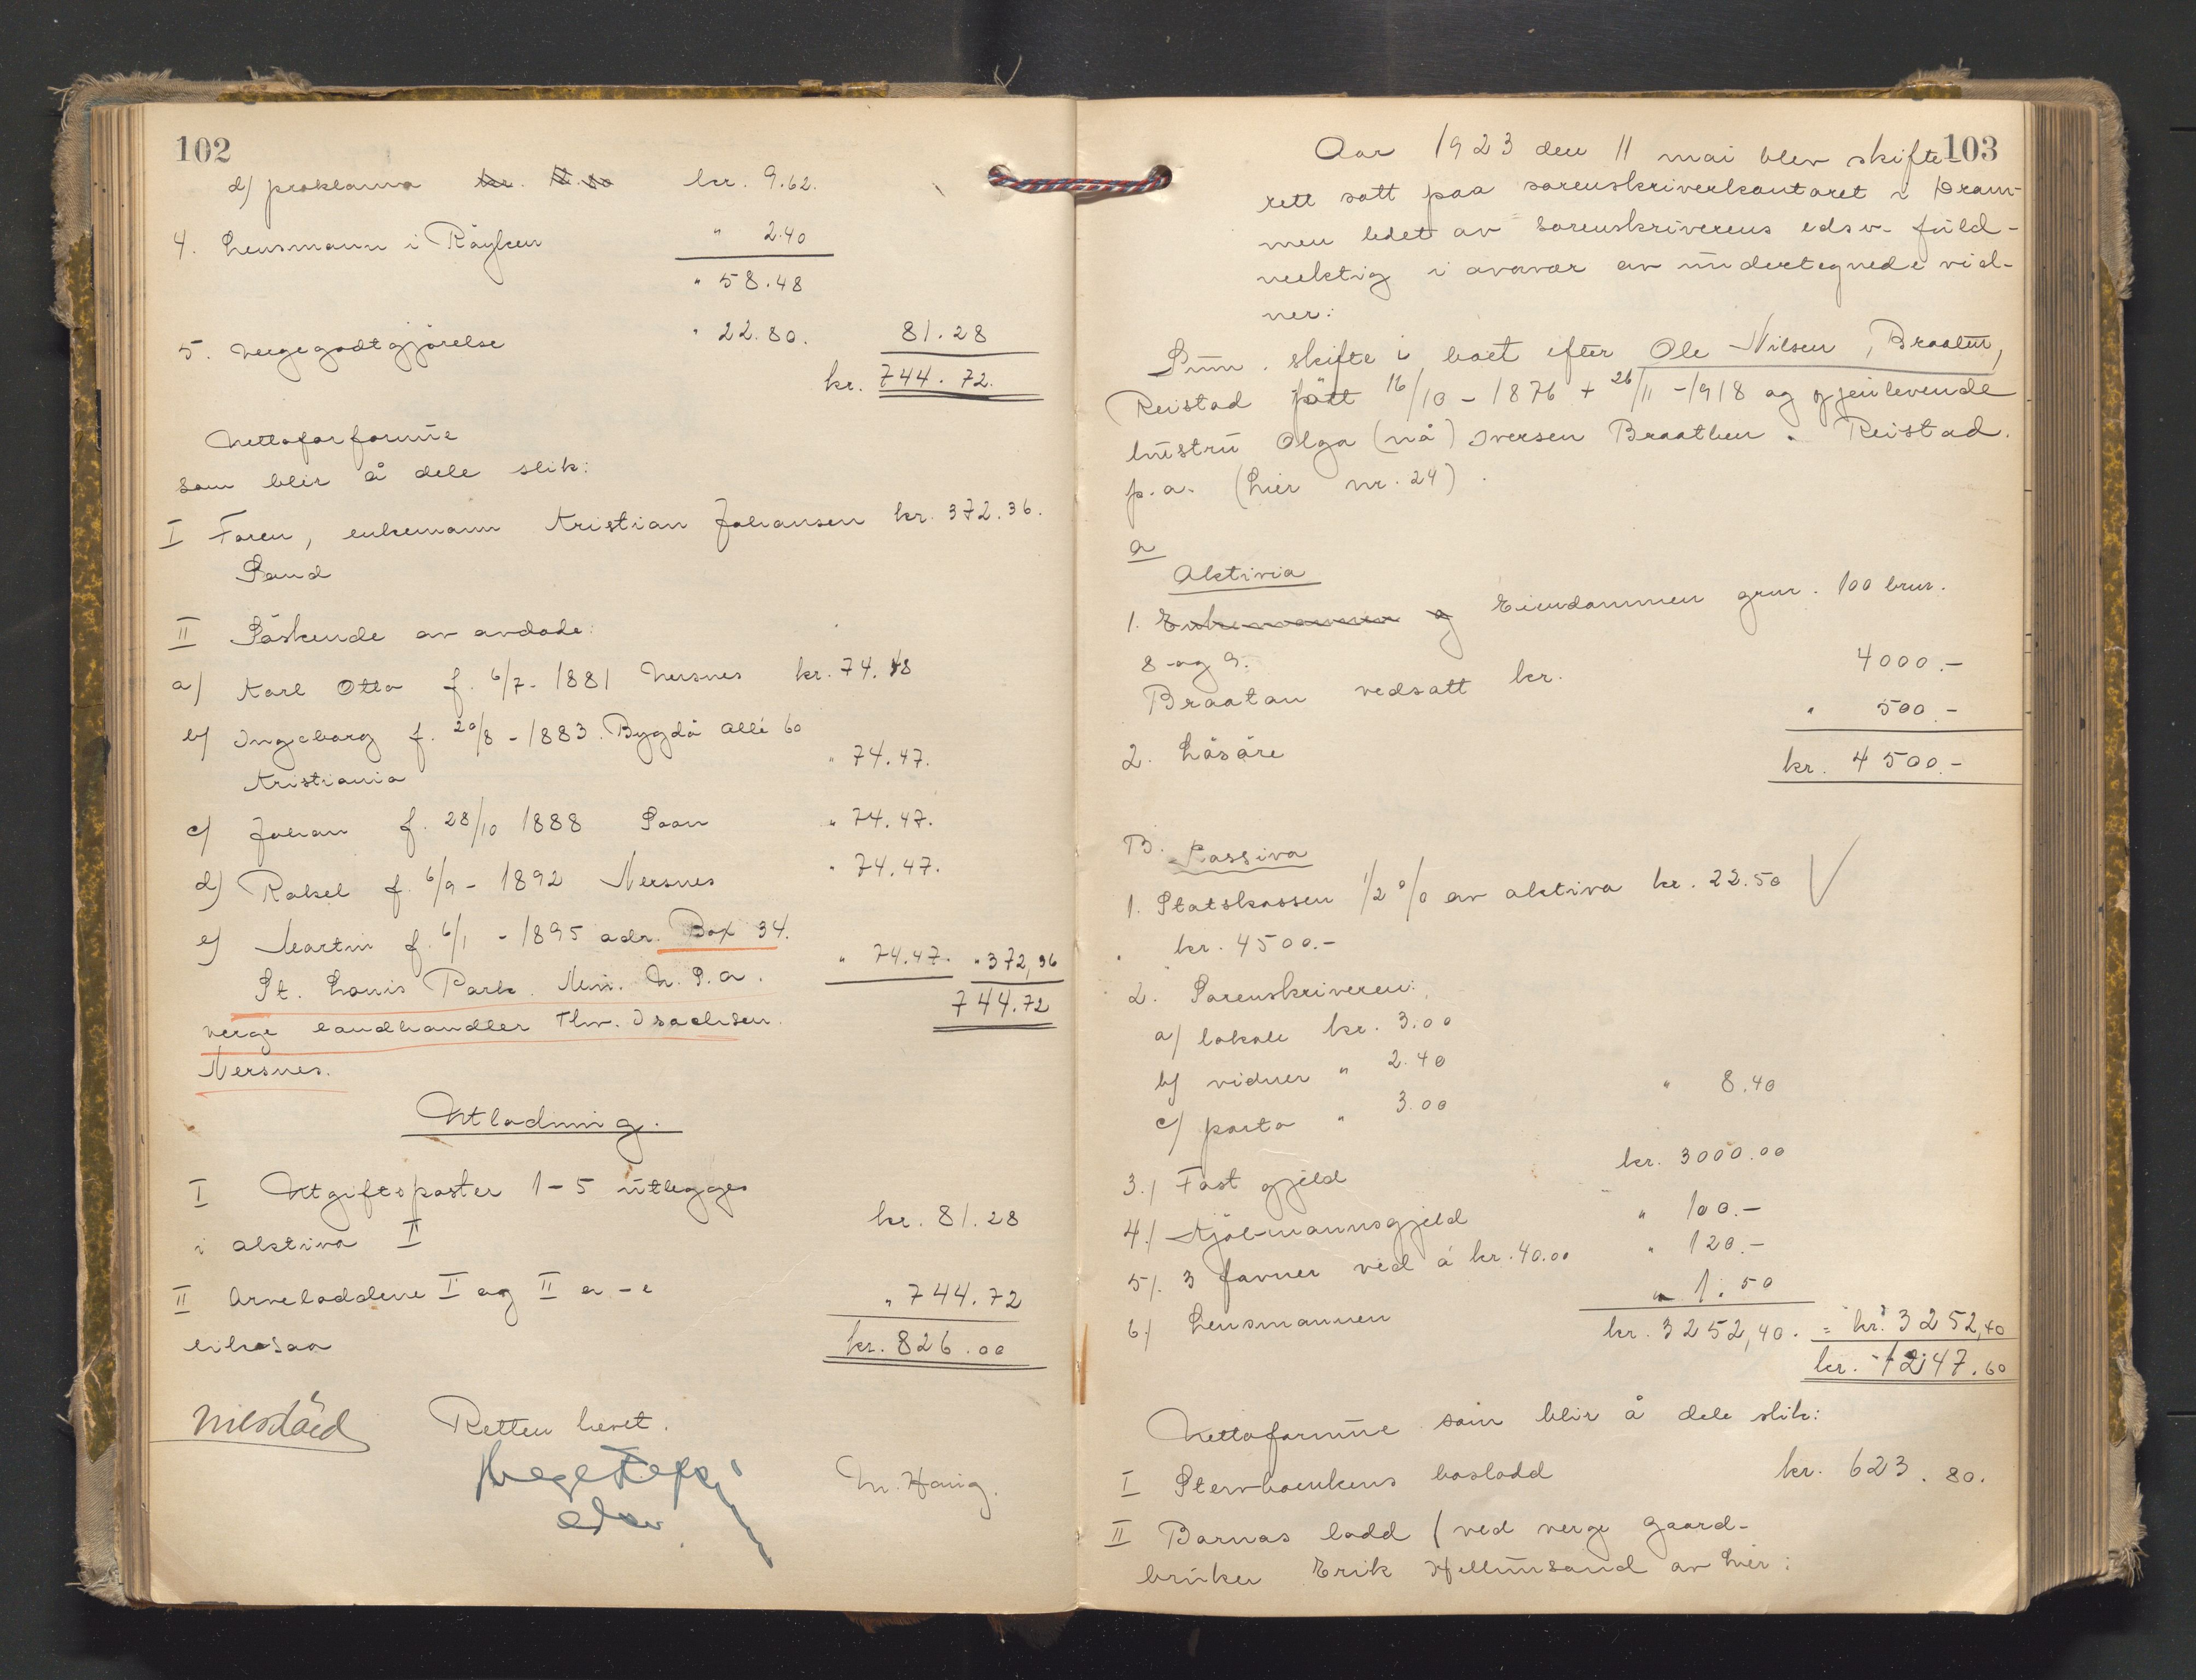 102
d) proklama kr. 9.62.
4. Lensmann i Röyken " 2.40
" 58.48
5. Vergegodtgjörelse " 22.80. 81.28
kr. 744.72.
Nettoforformue
som blir å dele slik:
I Faren, enkemann Kristian Johansen kr. 372.36.
Sand
II Söskende av avdöde:
a) Karl Otto f. 6/7-1881 Nersnes kr. 74.48
b) Ingeborg f. 20/8-1883. Bygdö allé 60
Kristiania " 74.47.
c) Johan f. 28/10 1888 Saan " 74.47.
d) Rakel f. 6/9-1892 Nersnes " 74.47.
e) Martin f. 6/1-1895 adr. Box 34.
St. Louis Park. Min. U.S.a. " 74.47. " 372,36
verge landhandler Thv. Isachsen. 744.72
Nersnes.
Utlodning.
I Utgiftsposter 1-5 utlegges
i aktiva I kr. 81.28
II Arveloddene I og II a-e " 744.72
likesaa kr. 826.00
Retten hevet.
M. Haug.
103
Aar 1923 den 11 mai blev skifte-
rett satt paa sorenskriverkontoret i Dram-
men ledet av sorenskriverens edsv. fuld-
mektig i overvær av undertegnede vid-
ner:
Sum. skifte i boet efter Ole Nilsen, Braaten,
Reistad født 16/10-1876 + 26/11-1918 og gjenlevende
hustru Olga (nå) Iversen Braathen. Reistad.
p.a. (Lier nr. 24).
a
Aktiva
1. Enkemannen og Eiendommen gnr. 100 bnr.
8 og 9.
Braatan vedsatt kr. 4000.-
2. Lösöre " 500.-
kr. 4500.-
B. Passiva
1. Statskassen 1/2 % av aktiva kr. 22.50
kr. 4500.-
2. Sorenskriveren:
a) lokale kr. 3.00
b) vidner " 2.40
c) porto " 3.00 " 8.40
3.) Fast gjeld kr. 3000.00
4.) Kjöbmannsgjeld " 100.-
5). 3 favner ved á kr. 40.00 " 120.-
6.) Lensmannen " 1.50
kr. 3252,40. = kr. 3252,40
kr. 1247.60
Nettoformue som blir å dele slik:
I Stervboenkens boslodd kr. 623.80.
II Barnas lodd (ved verge gaard-
bruker Erik Hellumsand av Lier: